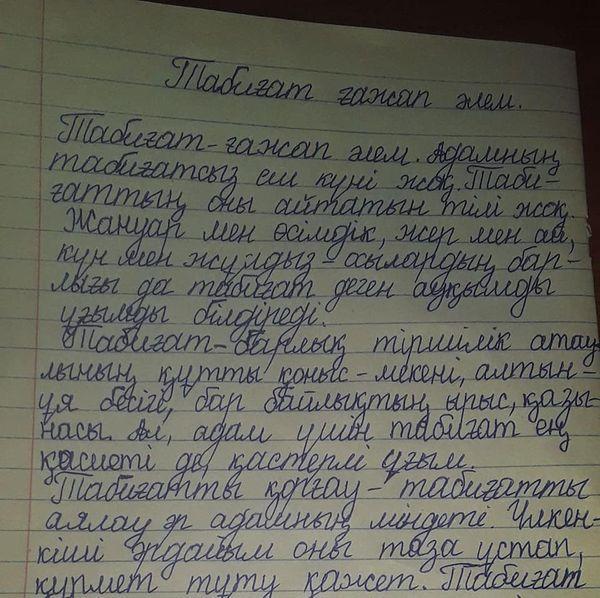 Табиғат ғажап әлем.
Табиғат-ғажап әлем. Адамның
табиғатсыз еш күні жоқ. Таби-
ғаттың оны айтатын тілі жоқ.
Жануар мен өсімдік, жер мен ай,
күн мен жұлдыз - осылардың бар-
лығы да табиғат деген ауқымды
ұғымды білдіреді.
Табиғат-барлық тіршілік атау-
лының құтты қоныс-мекені, алтын-
ұя бесігі, бар байлықтың ырыс, қазы-
насы. Ал, адам үшін табиғат ең
қасиеті де, қастерлі ұғым.
Табиғатты қорғау - табиғатты
аялау әр адамның міндеті. Үлкен-
кіші әрдайым оны таза ұстап,
құрмет тұту қажет. Табиғат